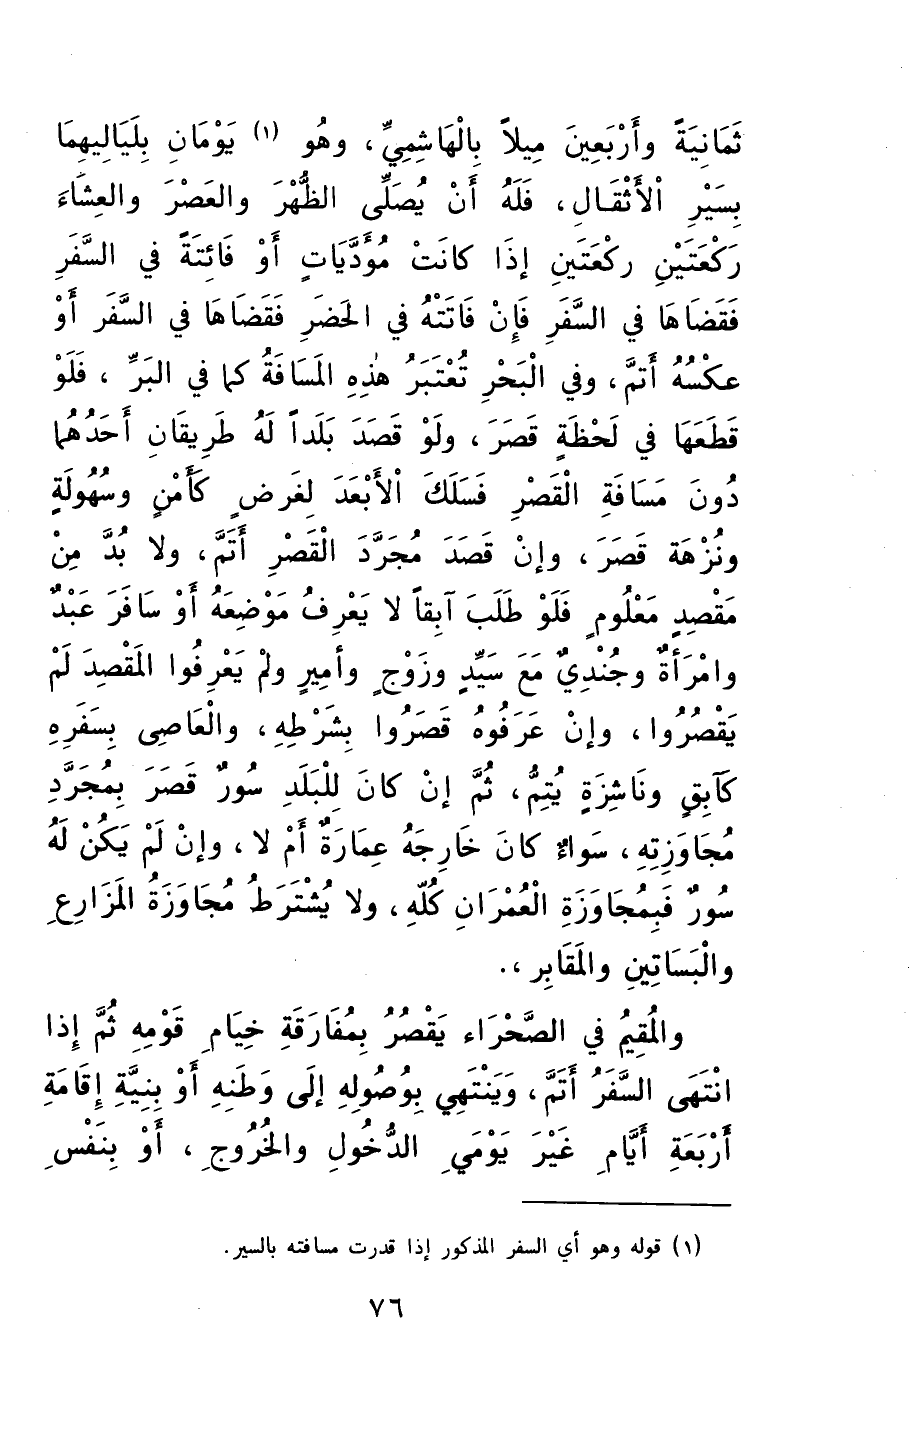 ثَمَانِيَةً وأَرْبَعِينَ مِيلاً بِالْهَاشِمِيِّ، وهُو (١) يَوْمَانِ بِلَيَالِيهِمَا
بِسَيْرِ الْأَثْقَالِ، فَلَهُ أَنْ يُصَلِّى الظُّهْرَ والعَصْرَ والعِشَاءَ
رَكْعَتَيْنِ ركْعَتَينِ إذَا كانَتْ مُؤَدَّيَاتٍ أَوْ فَائِتَةً في السَّفَرِ
فَقَضَاهَا في السَّفَرِ فَإِنْ فَاتَتْهُ في الحَضَرِ فَقَضَاهَا في السَّفَر أَوْ
عكْسُهُ أَتمَّ، وفي الْبَحْرِ تُعْتَبَرُ هٰذِهِ المَسَافَةُ كما في البَرِّ، فَلَوْ
قَطَعَهَا في لَحْظَةٍ قَصَرَ، ولَوْ قَصَدَ بَلَداً لَهُ طَرِيقَانِ أَحَدُهُما
دُونَ مَسَافَةِ الْقَصْرِ فَسَلَكَ الْأَبْعَدَ لِغَرضٍ كَأَمْنٍ وسُهُولَةٍ
ونُزْهَة قَصَرَ، وإنْ قَصَدَ مُجَرَّدَ الْقَصْرِ أَتَمَّ، ولا بُدَّ مِنْ
مَقْصِدٍ مَعْلُومٍ فَلَوْ طَلَبَ آبِقاً لا يَعْرِفُ مَوْضِعَهُ أَوْ سَافَرَ عَبْدٌ
وامْرَأَةٌ وجُنْدِيٌ مَعَ سَيِّدٍ وزَوْجٍ وأمِيرٍ ولمْ يَعْرِفُوا المَقْصِدَ لَمْ
يَقْصُرُوا، وإنْ عَرَفُوهُ قَصَرُوا بِشَرْطِهِ، والْعَاصِى بِسَفَرِهِ
كَآبِقٍ ونَاشِزَةٍ يُتِمُّ، ثُمَّ إنْ كانَ لِلْبَلَدِ سُورٌ قَصَرَ بِمُجَرَّدِ
مُجَاوَزتِهِ، سَواءٌ كانَ خَارِجَهُ عِمَارَةٌ أَمْ لا، وإنْ لَمْ يَكُنْ لَهُ
سُورٌ فَبِمُجَاوَزَةِ الْعُمْرَانِ كُلّهِ، ولا يُشْتَرَطُ مُجَاوَزَةُ المَزَارِعِ
والْبَسَاتِينِ والمَقَابِر،.
والمُقِيمُ في الصَّحْرَاء يَقْصُرُ بِمُفَارَقَةِ خِيَامِ قَوْمِهِ ثُمَّ إذا
انْتَهَى السَّفَرُ أَتَمَّ، وَيَنْتَهِي بِوُصُولِهِ إلَى وَطَنِهِ أَوْ بِنِيَّةِ إقَامَةِ
أَرْبَعَةِ أَيَّامِ غَيْرَ يَوْمَيِ الدُّخُولِ والخُرُوجِ، أَوْ بِنَفْسِ
(١) قوله وهو أي السفر المذكور إذا قدرت مسافته بالسير.
٧٦